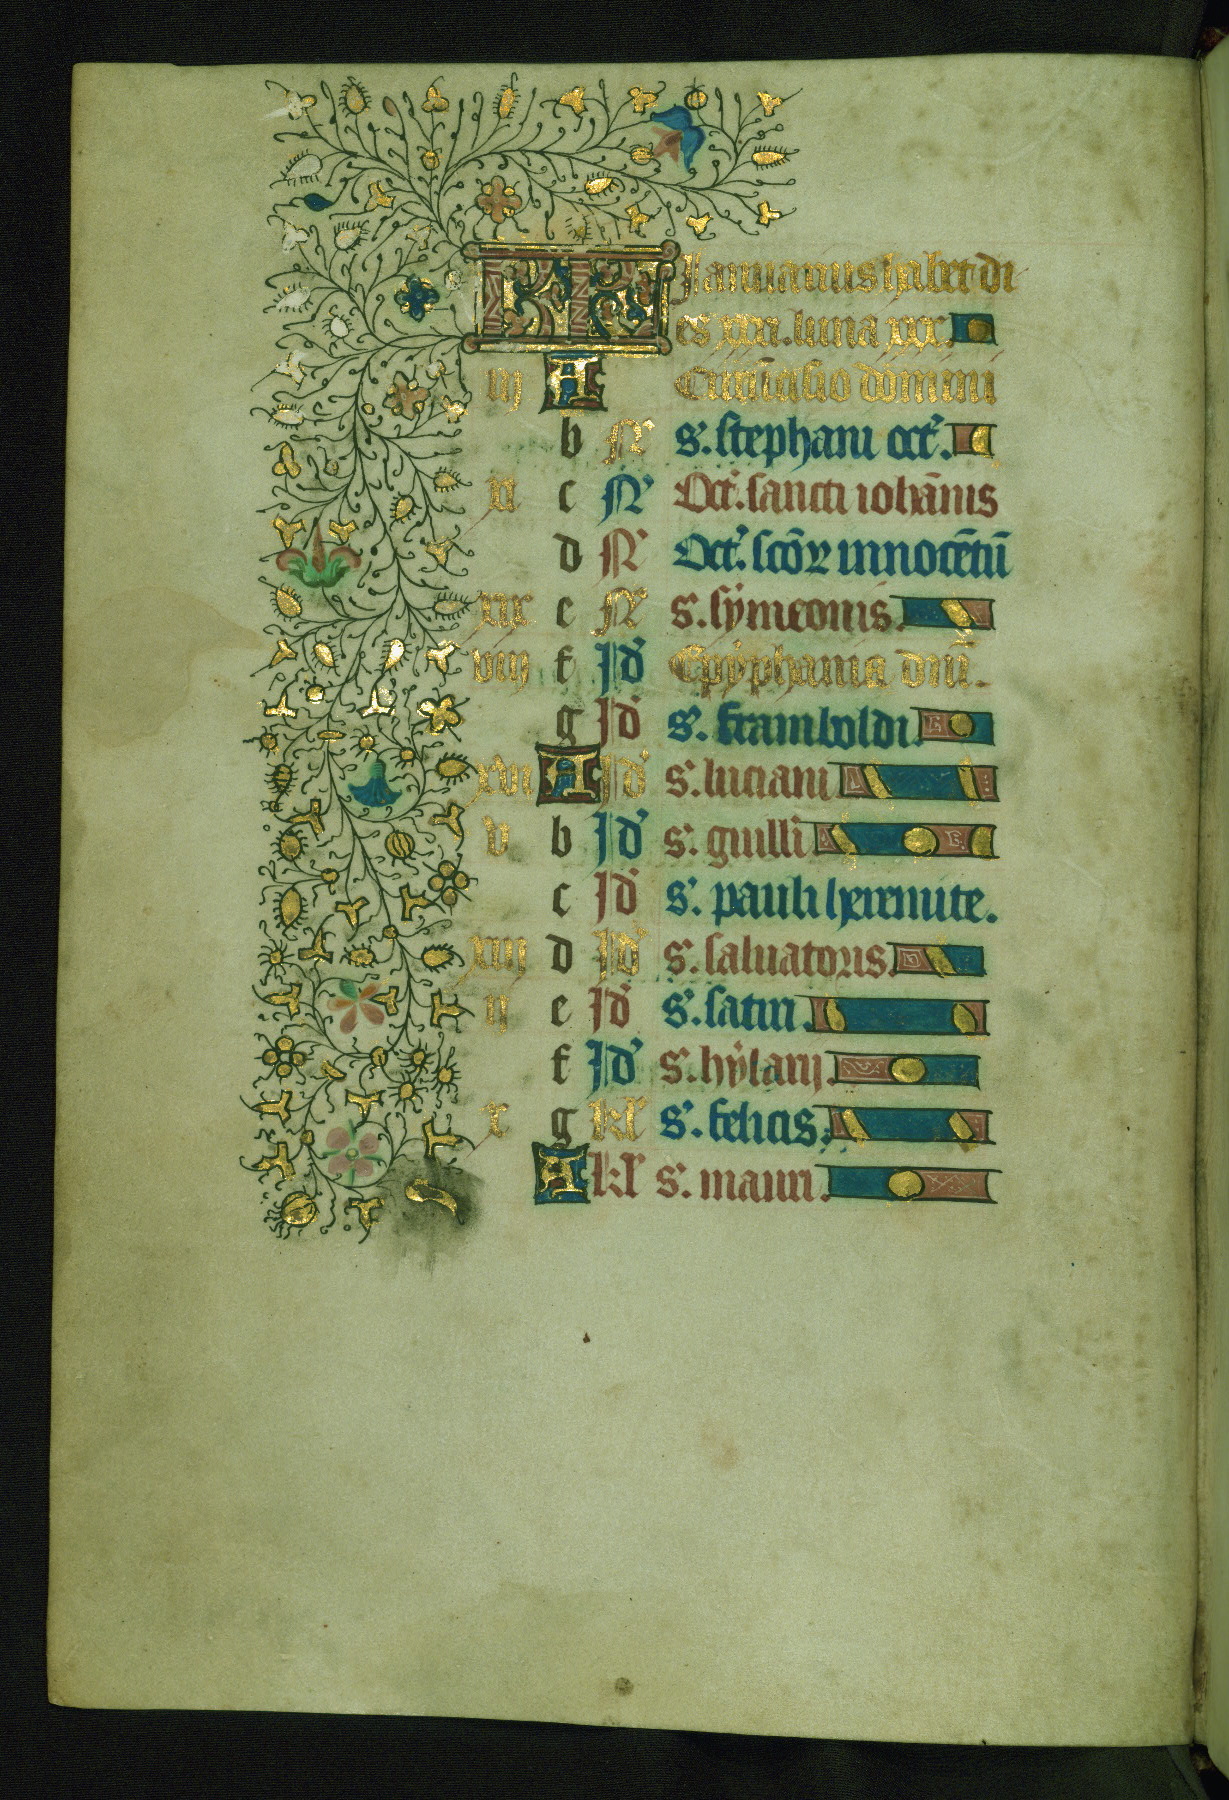 KL Januarius habet di
es xxxi. luna xxx.
iij A Circūcisio domini
b N' s'. stephani oct'.
xi c N' Oct'. sancti iohānis
d N' Oct'. scōꝝ innocētū
xix e N' s'. sẏmeonis.
viij f Jd' Epẏphania dnī.
g Jd' s'. framboldi.
xvi A Jd' s'. luciani
v b Jd' s'. guilli
c Jd' s'. pauli heremite.
xiij d Jd' s'. saluatoris.
ij e Jd' s'. satiri.
f Jd' s'. hẏlarij.
x g kl' s'. felicis.
A kl' s'. mauri.